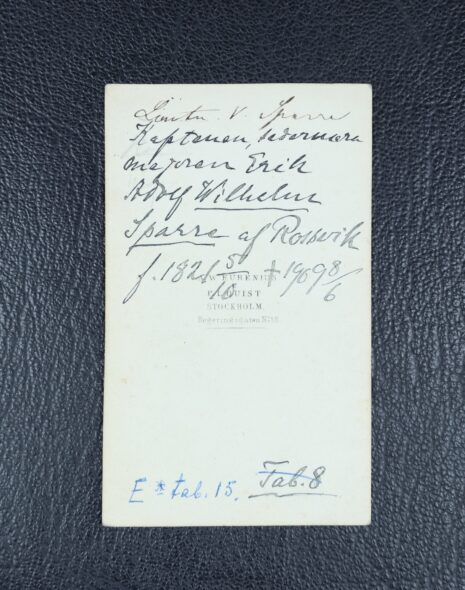 Löjtn. v. Sparre
Kaptenen, sedermera
majoren Erik
Adolf Wilhelm
Sparre af Rossvik
f. 1821 5/10 † 1909 8/6
W. EURENIUS
P. L. QUIST
STOCKHOLM.
Regeringsgatan N:
E * tab. 15. Tab. 8